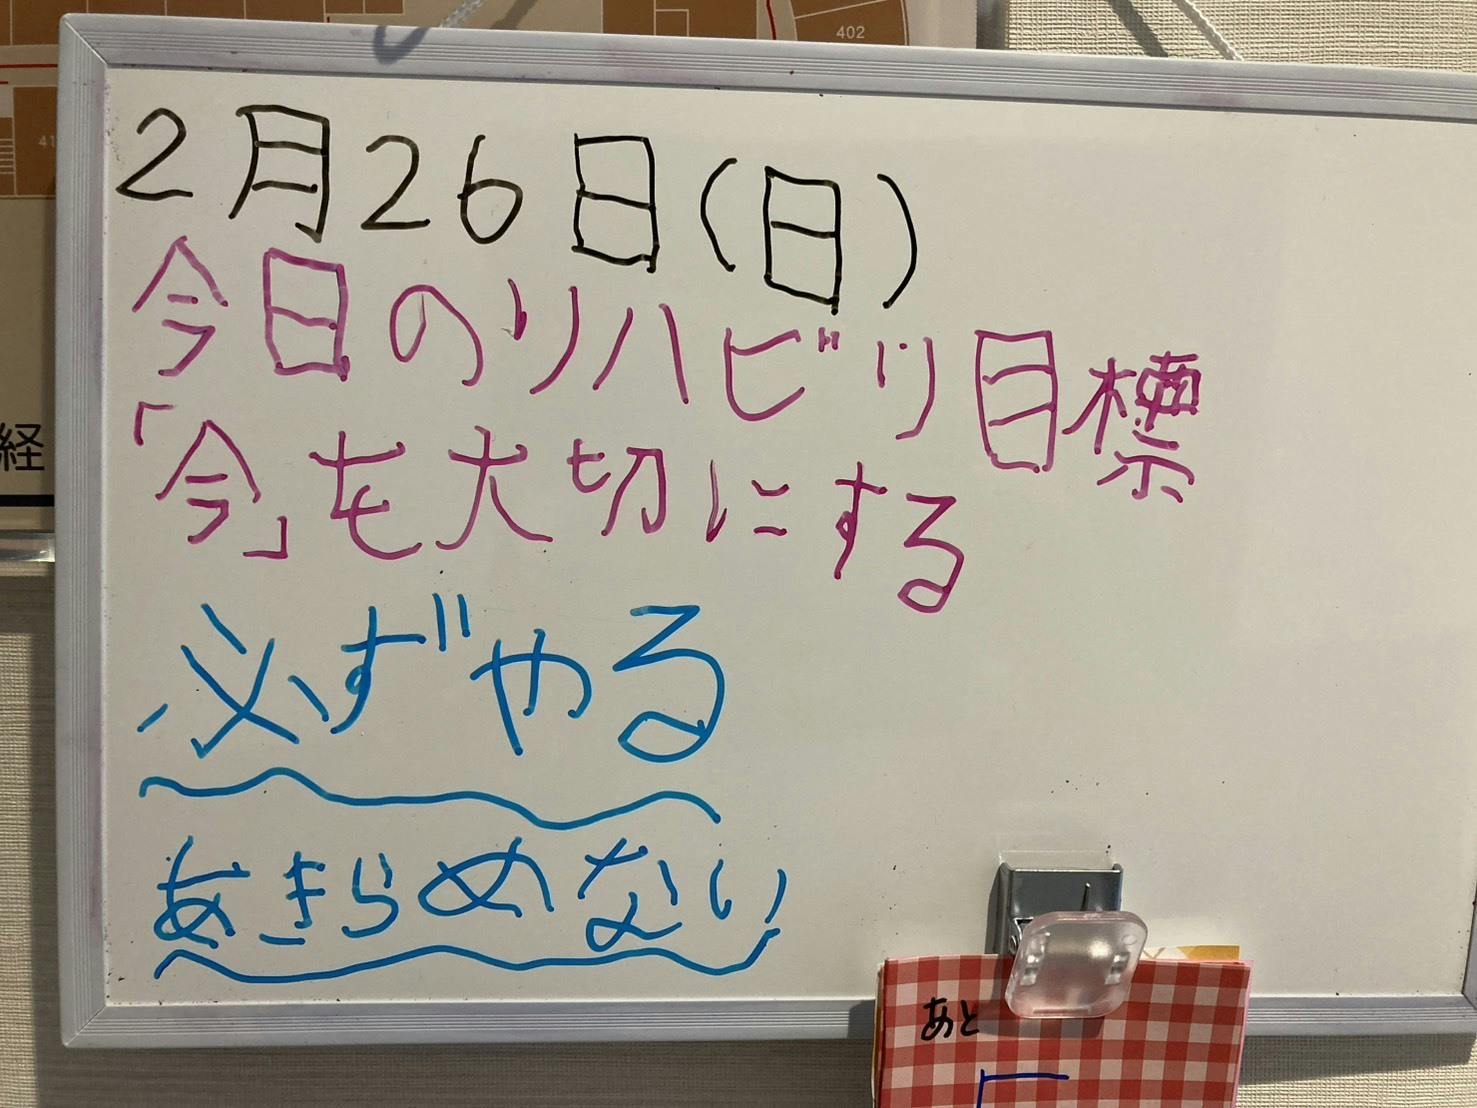 402
41
2月26日(日)
今日のリハビリ目標
「今」を大切にする
経
必ずやる
あきらめない
あと